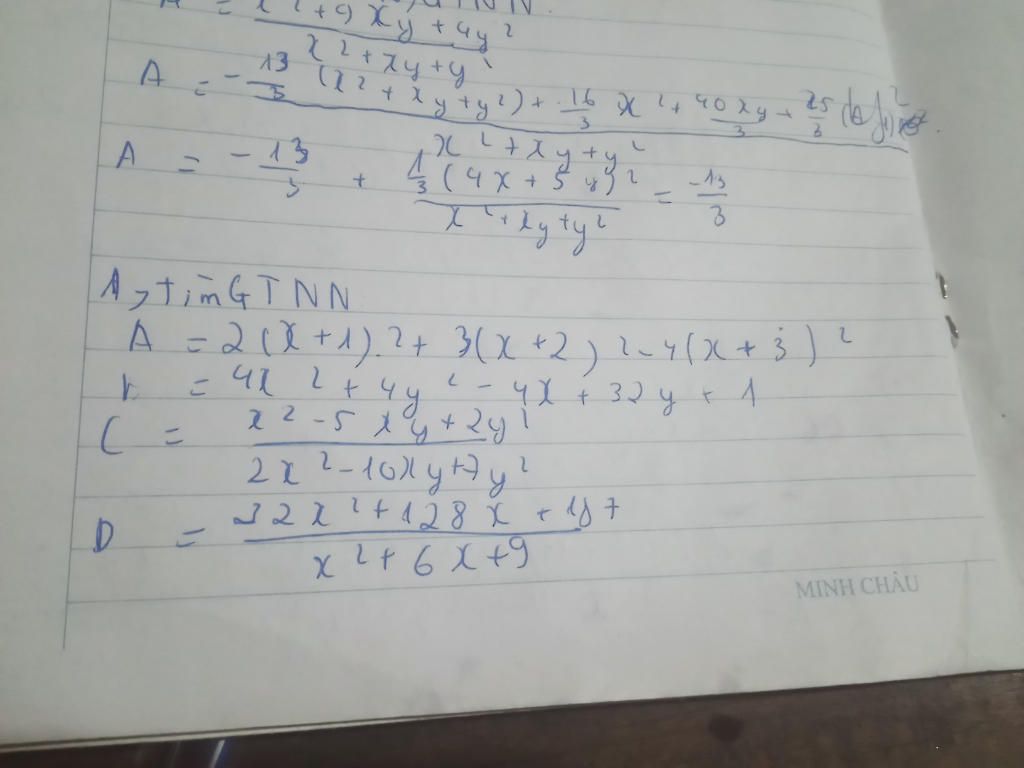 = x² + 9xy + 4y²
x² + xy + y²
A = -13/3 (x² + xy + y²) + 16/3 x² + 40xy/3 + 25/3
x² + xy + y²
A = -13/3 + 1/3 (4x + 5y)² = -13/3
x² + xy + y²
1, tìm GTNN
A = 2(x+1)² + 3(x+2)² - 4(x+3)²
= 4x² + 4y² - 4x + 32y + 1
C = x² - 5xy + 2y²
2x² - 10xy + 7y²
D = 32x² + 128x + 187
x² + 6x + 9
MINH CHÂU